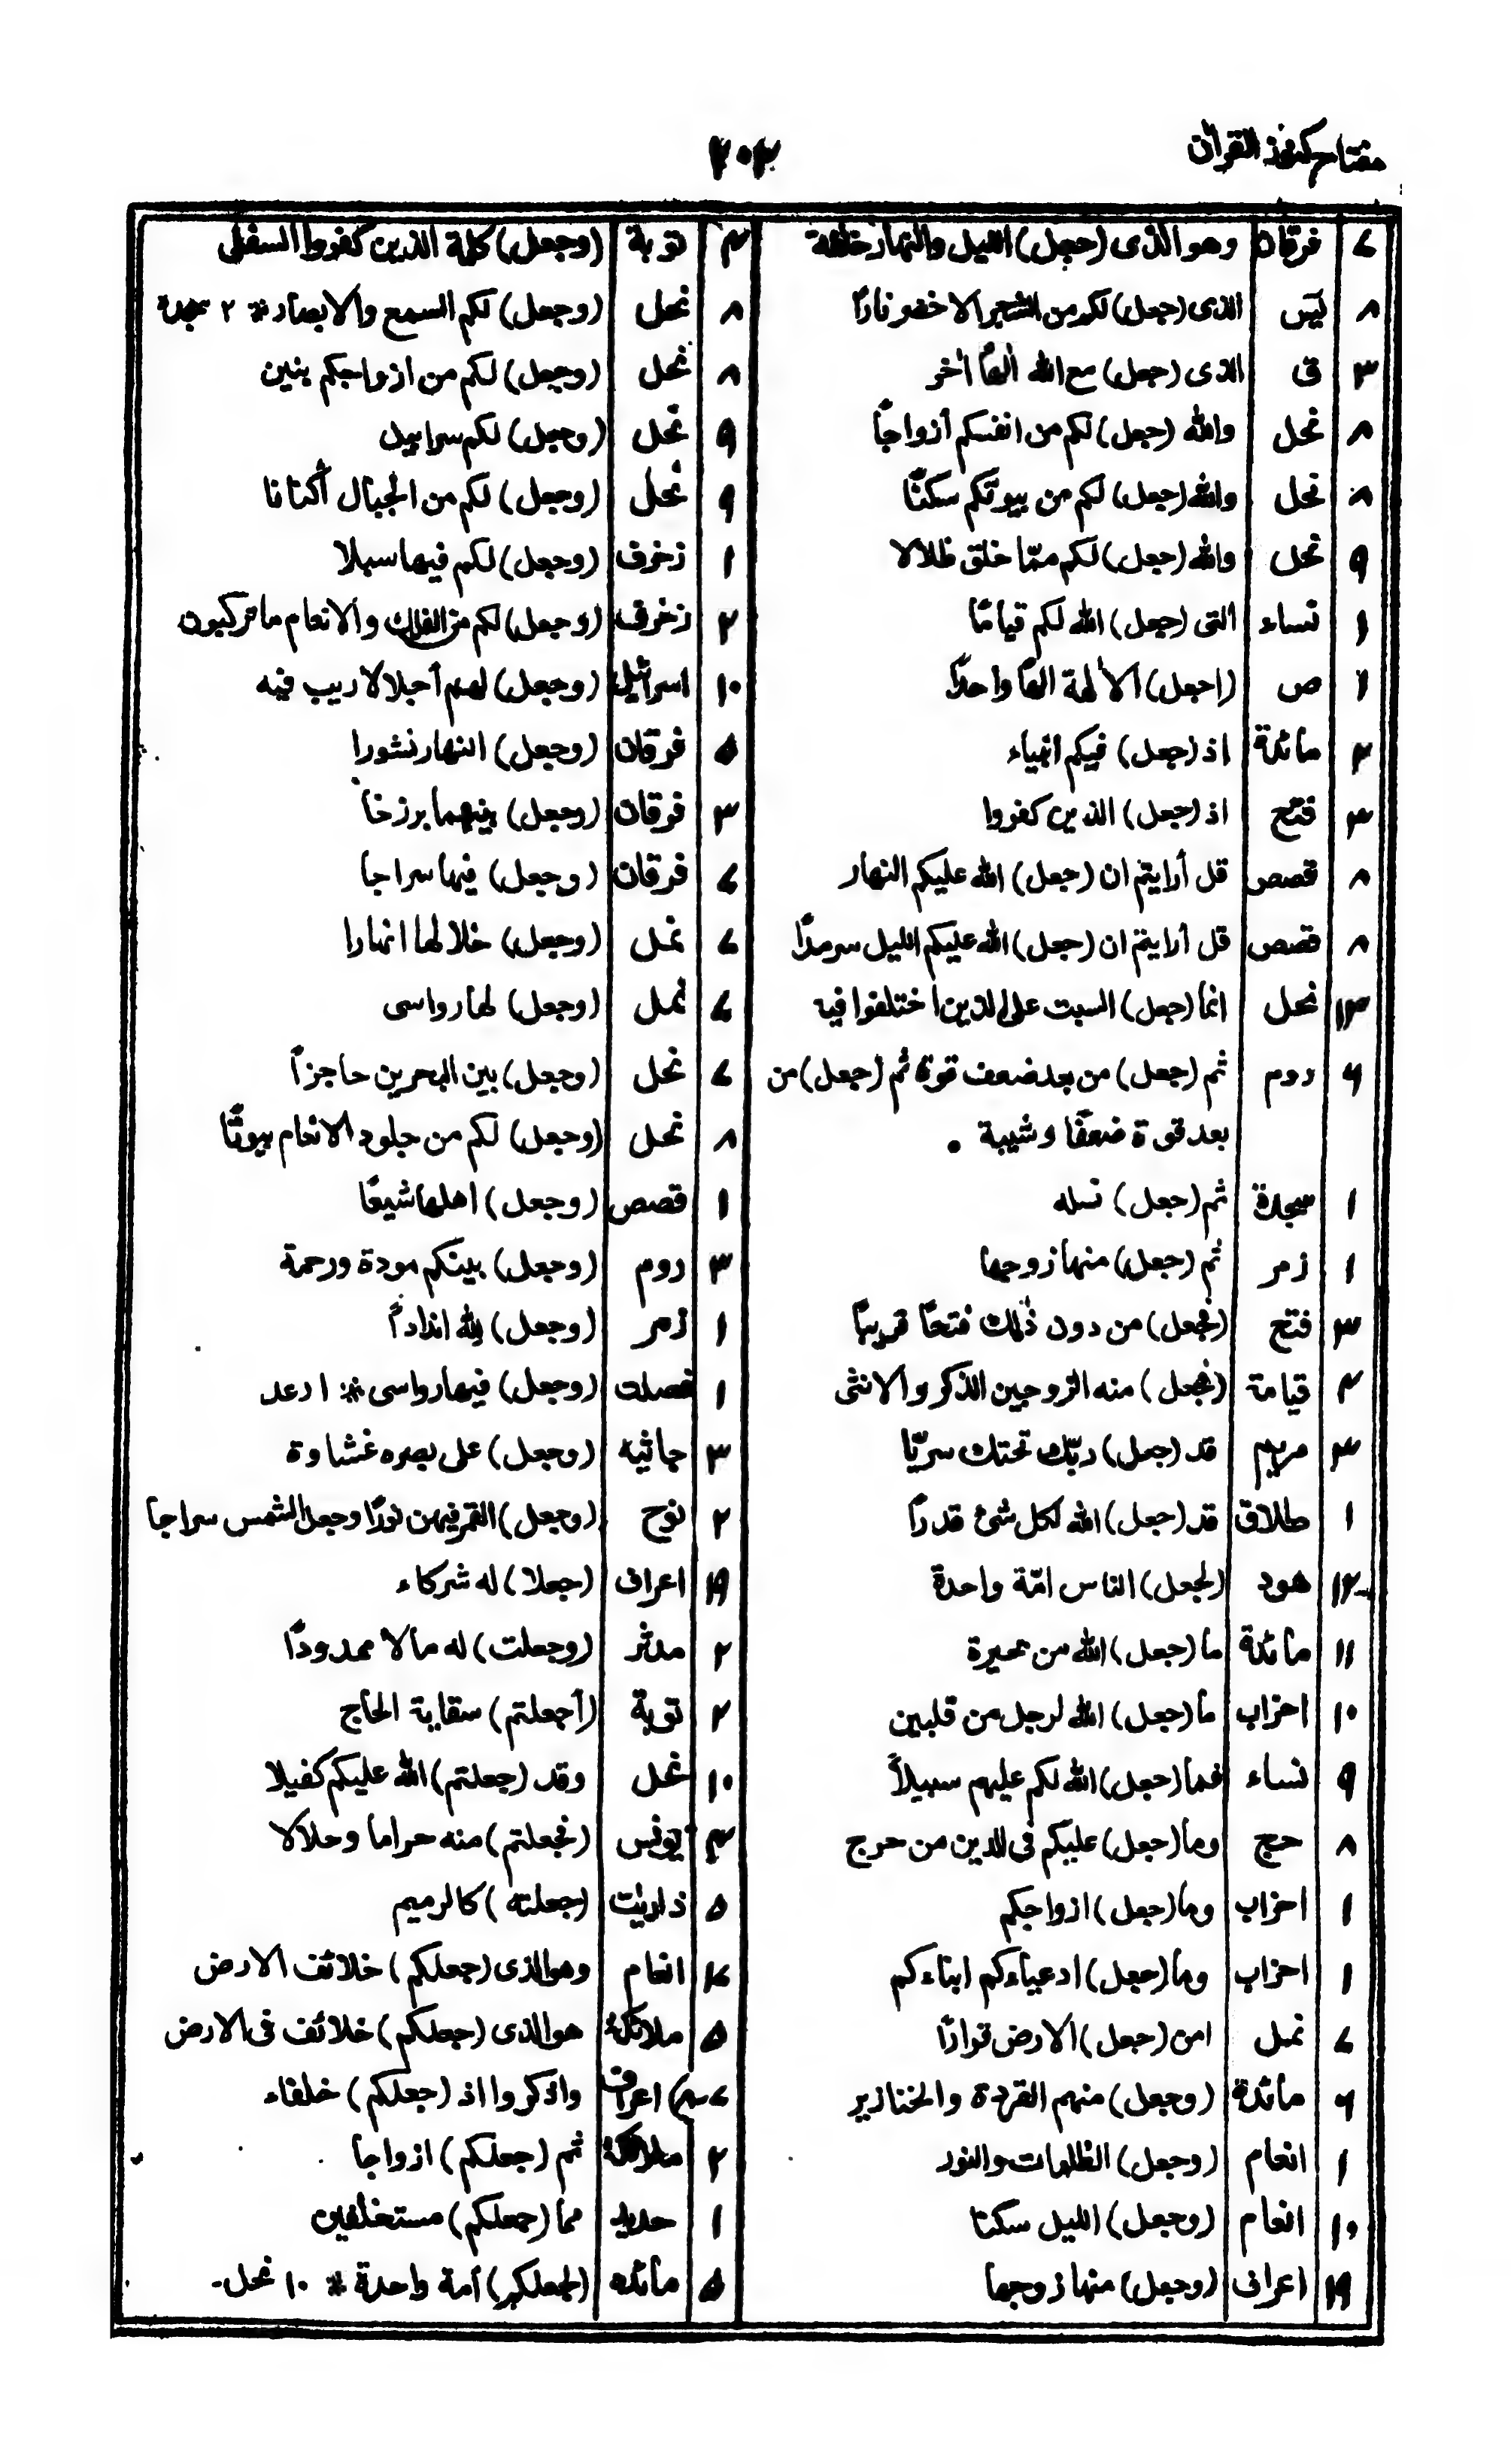 مفتاح كنوز القرآن
٢٠٢
٦ فرقان وهو الذى (جعل) الليل والنهار خلفة
٨ يٰس الذى (جعل) لكم من الشجر الاخضر نارًا
٣ ق الذى (جعل) مع الله الهًا أخر
٨ نحل والله (جعل) لكم من انفسكم أزواجًا
٨ نحل والله (جعل) لكم من بيوتكم سكنًا
٩ نحل والله (جعل) لكم ممّا خلق ظلالا
١ نساء التى (جعل) الله لكم قيامًا
١ ص (اجعل) الألهة الهًا واحدًا
٢ مائدة اذ (جعل) فيكم انبياء
٣ فتح اذ (جعل) الذين كفروا
٨ قصص قل أرايتم ان (جعل) الله عليكم النهار
٨ قصص قل أرايتم ان (جعل) الله عليكم الليل سرمدًا
١٣ نحل انما (جعل) السبت على الذين اختلفوا فيه
٩ روم ثم (جعل) من بعد ضعف قوة ثم (جعل) من
بعد قوة ضعفًا وشيبة ٠
١ سجدة ثم (جعل) نسله
١ زمر ثم (جعل) منها زوجها
٣ فتح (فجعل) من دون ذٰلك فتحًا قريبًا
٢ قيامة (فجعل) منه الزوجين الذكر والانثى
٣ مريم قد (جعل) ربّك تحتك سريّا
١ طلاق قد (جعل) الله لكل شئ قدرًا
١٢ هود (لجعل) الناس امّة واحدة
١١ مائدة ما (جعل) الله من بحيرة
١٠ احزاب ما (جعل) الله لرجل من قلبين
٩ نساء فما (جعل) الله لكم عليهم سبيلاً
٨ حج وما (جعل) عليكم فى الدين من حرج
١ احزاب وما (جعل) ازواجكم
١ احزاب وما (جعل) ادعياءكم ابناءكم
٦ نمل امن (جعل) الارض قرارًا
٩ مائدة (وجعل) منهم القردة والخنازير
١ انعام (وجعل) الظلمات والنور
١٠ انعام (وجعل) الليل سكنا
١٩ اعراف (وجعل) منها زوجها
٣ توبة (وجعل) كلمة الذين كفروا السفلى
٨ نحل (وجعل) لكم السمع والابصار ٭ ٢ سجدة
٨ نحل (وجعل) لكم من ازواجكم بنين
٩ نحل (وجعل) لكم سرابيل
٩ نحل (وجعل) لكم من الجبال أكنانا
١ زخرف (وجعل) لكم فيها سبلا
٢ زخرف (وجعل) لكم من الفلك والانعام ما تركبون
١٠ اسرائيل (وجعل) لهم أجلا لاريب فيه
٥ فرقان (وجعل) النهار نشورا
٣ فرقان (وجعل) بينهما برزخا
٦ فرقان (وجعل) فيها سراجا
٦ نمل (وجعل) خلالها انهارا
٦ نمل (وجعل) لها رواسى
٦ نحل (وجعل) بين البحرين حاجزاً
٨ نحل (وجعل) لكم من جلود الانعام بيوتًا
١ قصص (وجعل) اهلها شيعًا
٣ روم (وجعل) بينكم مودة ورحمة
١ زمر (وجعل) لله انداداً
١ فصلت (وجعل) فيها رواسى ٭ ١ رعد
٣ جاثيه (وجعل) على بصره غشاوة
٢ نوح (وجعل) القمر فيهن نورًا وجعل الشمس سراجا
١٩ اعراف (جعلا) له شركاء
٢ مدثر (وجعلت) له مالا ممدودًا
٢ توبة (أجعلتم) سقاية الحاج
١٠ نحل وقد (جعلتم) الله عليكم كفيلا
٣ يونس (فجعلتم) منه حراما وحلالا
٥ ذاريٰت (جعلته) كالرميم
١٦ انعام وهو الذى (جعلكم) خلائف الارض
٥ ملائكة هو الذى (جعلكم) خلائف فى الارض
٦-٨ اعراف واذكروا اذ (جعلكم) خلفاء
٢ ملائكة ثم (جعلكم) ازواجا
١ حديد مما (جعلكم) مستخلفين
٥ مائده (لجعلكم) أمة واحدة ٭ ١٠ نحل-